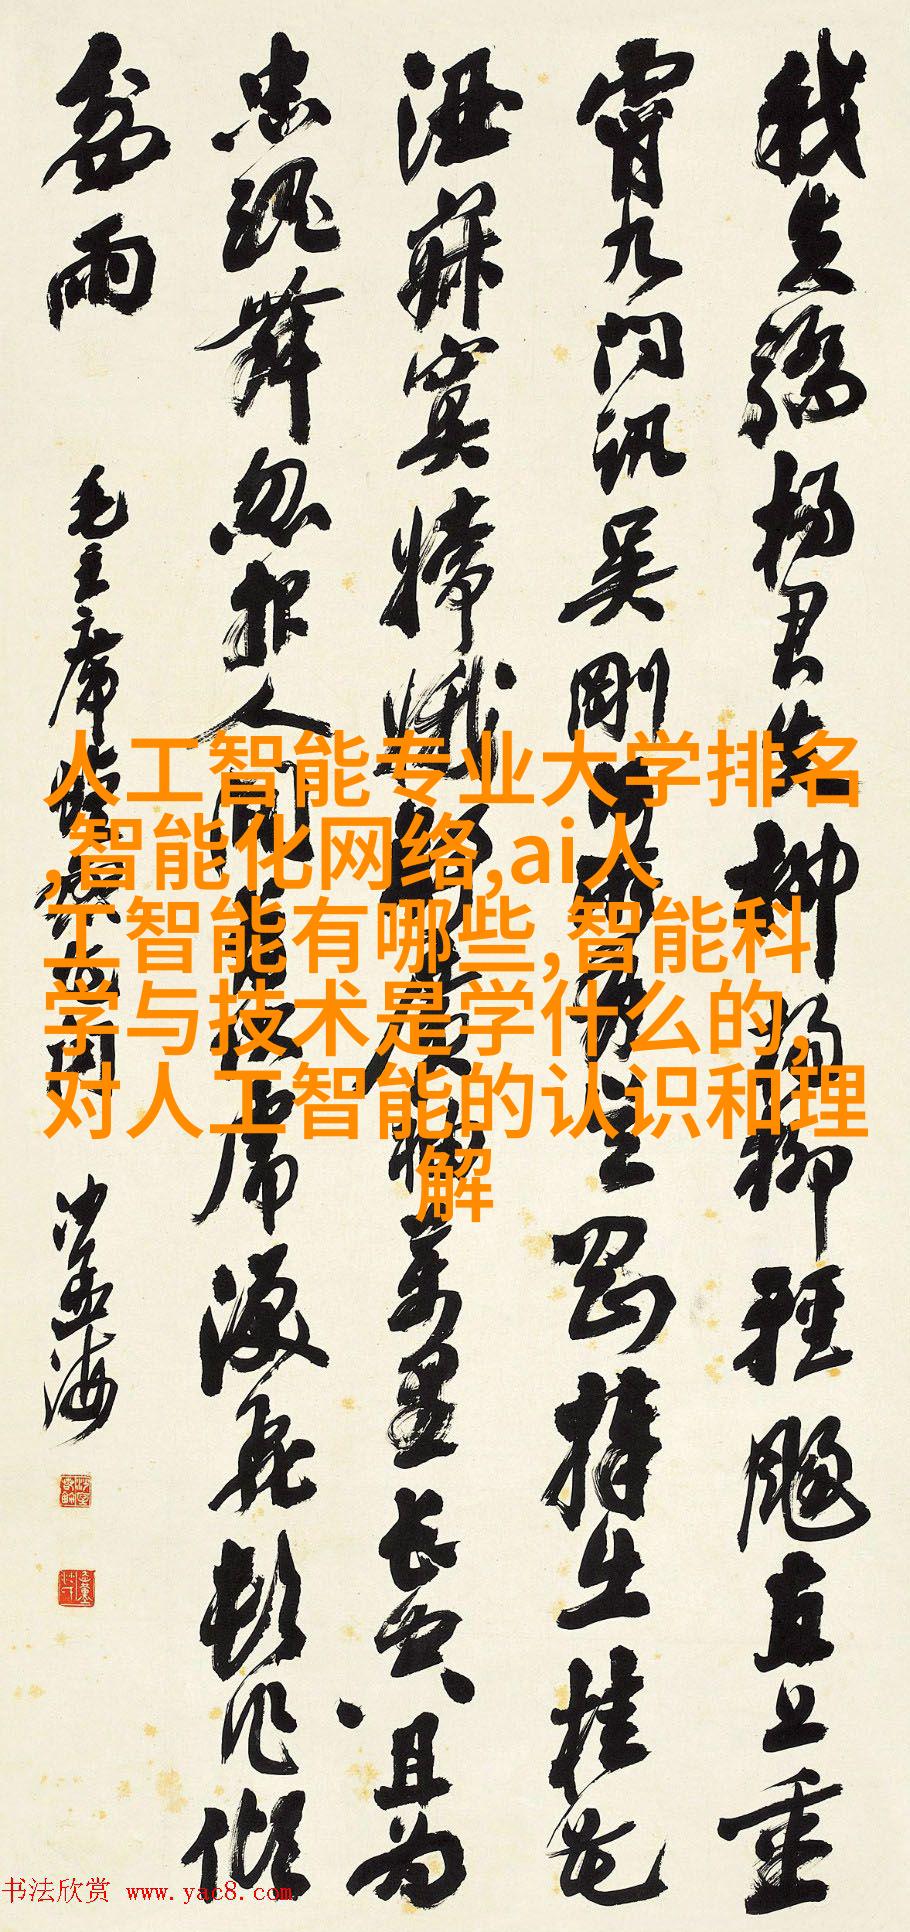 我失驕楊君失柳楊柳輕颺直上重
霄九问讯吴剛何所有吴刚捧出桂花
酒寂寞嫦娥舒廣袖萬里长空且为
忠魂舞忽报人间曾伏虎泪飛顿作傾
盆雨
毛主席
沙孟海
人工智能专业大学排名
,智能化网络,ai人
工智能有哪些,智能科
学与技术是学什么的,
对人工智能的认识和理
解
书法欣赏 www.yac8.com